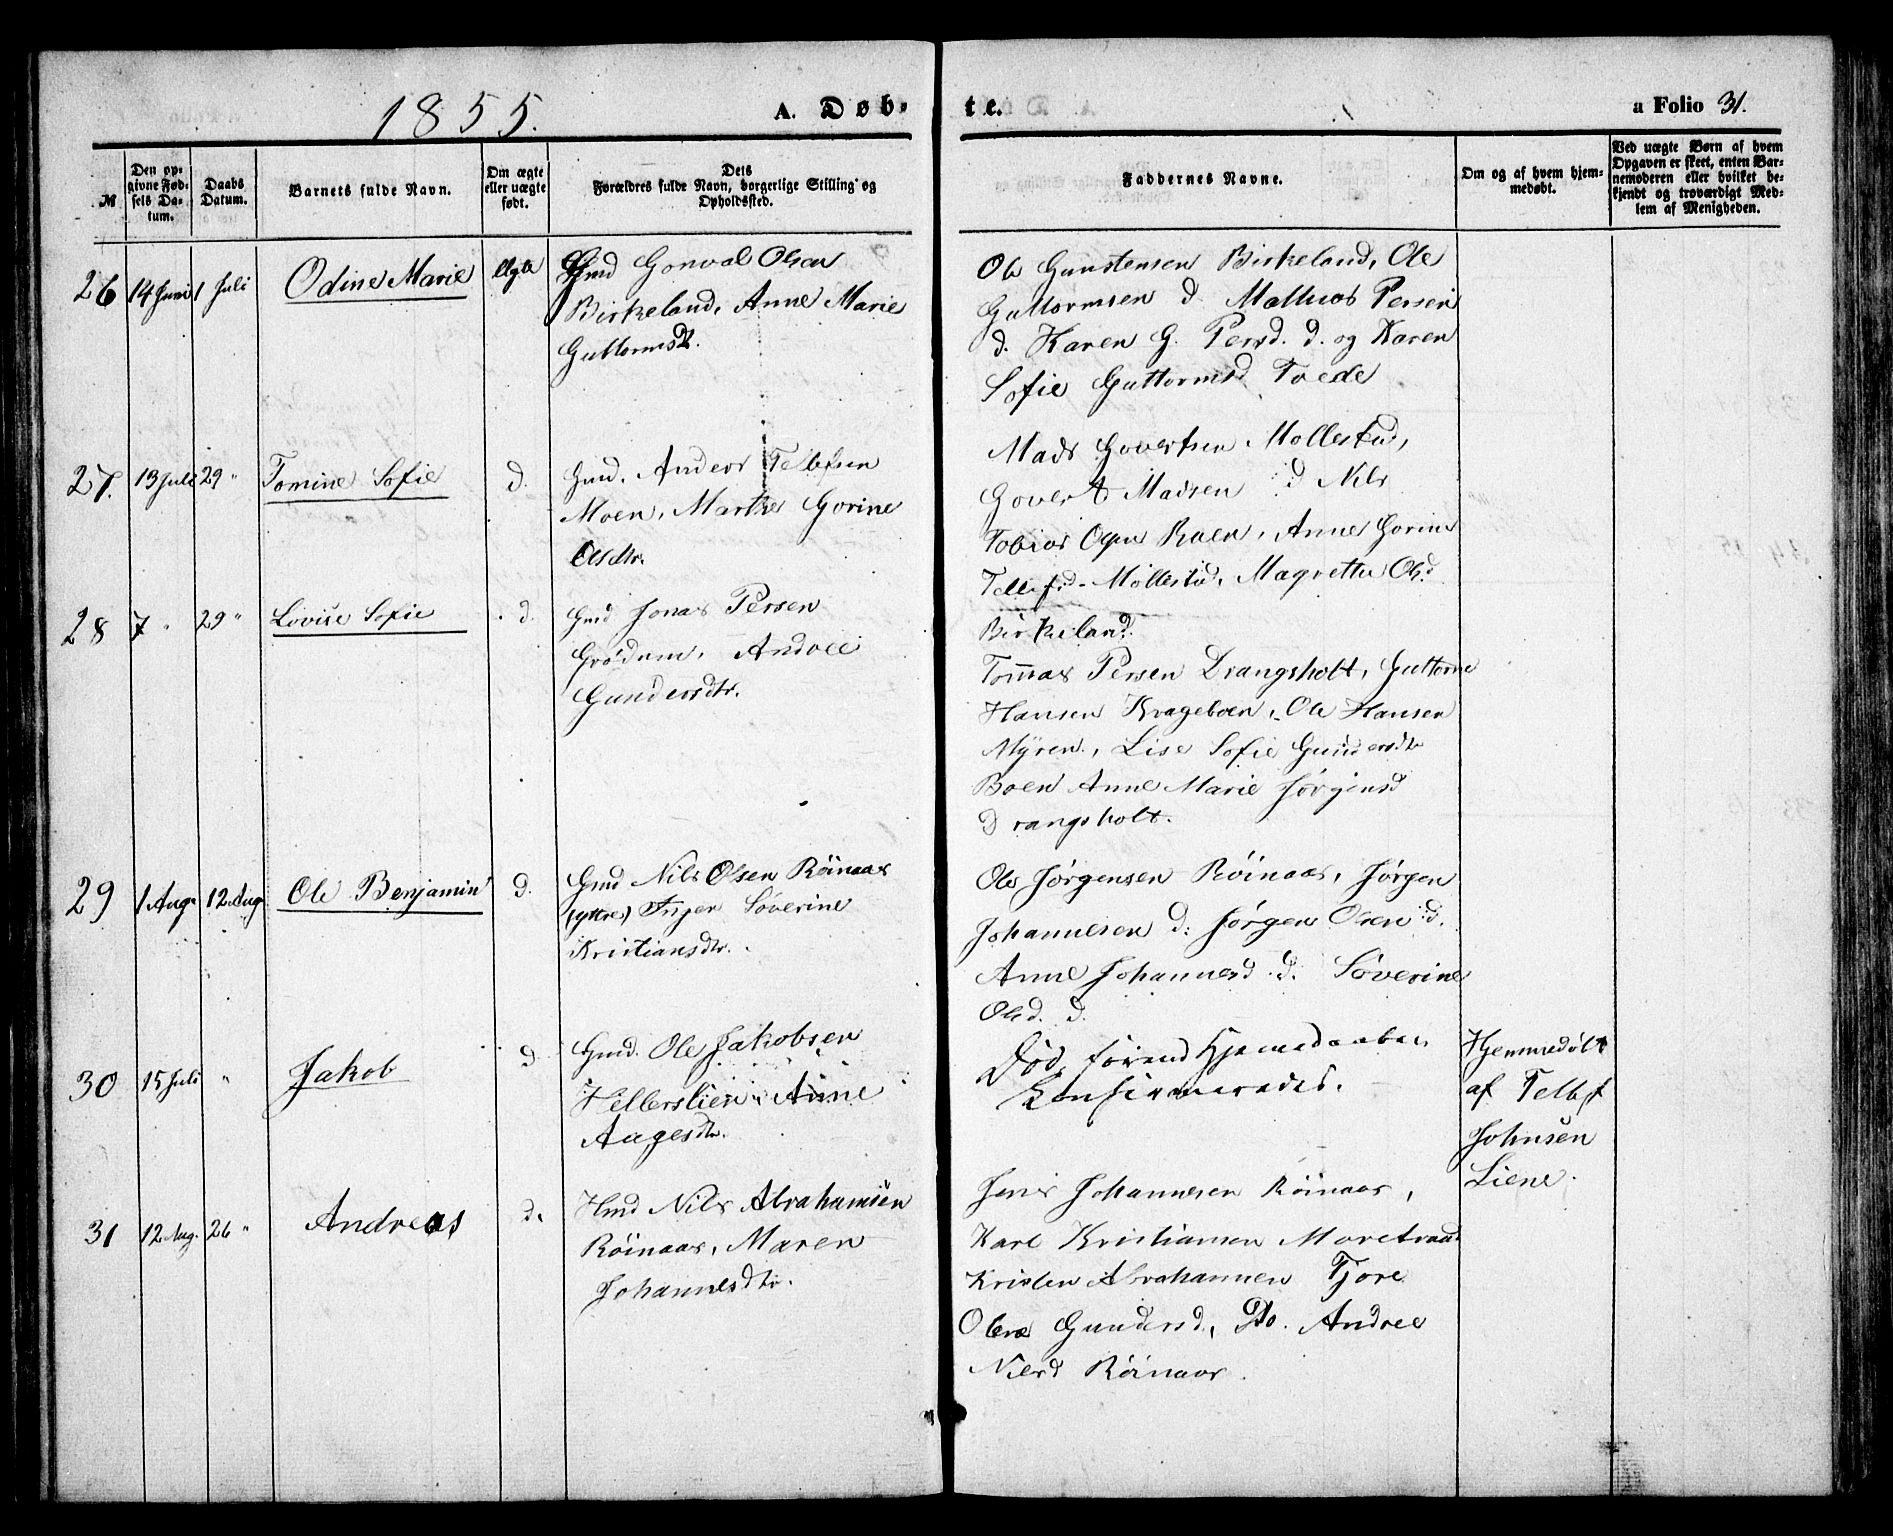 1855.
A. Døb-
te.
a Folio 31.
№
Den op-
givne Fød-
sels Da-
tum.
Daabs
Datum.
Barnets fulde Navn.
Om ægte
eller uægte
født.
Dets
Forældres fulde Navn, borgerlige Stilling og
Opholdssted.
Faddernes Navne.
Om og af hvem hjem-
medøbt.
Ved uægte Børn af hvem
Opgaven er skeet, enten Bar-
nemoderen eller hvilket be-
kjendt og troværdigt Med-
lem af Menigheden.
26 14 Juni 1 Juli Odine Marie ægte Gmd Gonval Olsen
Birkeland, Anne Marie
Guttormsdtr.
Ole Gunstensen Birkeland, Ole
Guttormsen d Mathias Persen
d. Karen G. Persd. d. og Karen
Sofie Guttormsd Tvede
27. 13 Juli 29 " Tomine Sofie d. Gmd. Anders Tellefsen
Moen, Marthe Gorine
Olsdtr.
Mads Govertsen Mollestad,
Govert Madsen d Nils
Tobias Boen, Anne Gorine
Tellefsd. Mollestad, Magrethe Olsd
Birkeland.
28 7 " 29 " Lovise Sofie d. Gmd Jonas Persen
Grødum, Andree
Gundersdtr.
Tommas Persen Drangsholt, Guttorm
Hansen Krageboen, Ole Hansen
Myren, Lise Sofie Gundersdtr
Boen Anne Marie Jørgensd
Drangsholt.
29 1 Aug. 12 Aug Ole Benjamin d. Gmd Nils Olsen Röinaas
(yttre) Inger Söverine
Kristiansdtr.
Ole Jørgensen Röinaas, Jørgen
Johannesen d: Jørgen Olsen d.
Anne Johannesd. d. Söverine
Olsd. d.
30 15 Juli " Jakob d. Gmd. Ole Jakobsen
Hellerslien Anne
Aagesdtr.
Död, förend Hjemmedaaben
Konfirmeredes.
Hjemmedøbt
af Tellef
Johnsen
Liene.
31 12 Aug. 26 " Andreas d. Hmd Nils Abrahamsen
Röinaas, Maren
Johannesdtr.
Jens Johannesen Röinaas,
Karl Kristiansen
Kristen Abrahamsen Tjore
Gundersd, Do. Andree
Nilsd Röinaas.